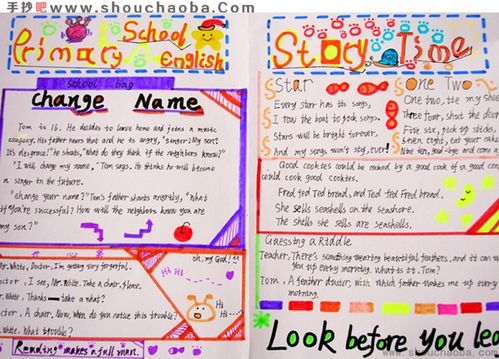 手抄吧 www.shouchaoba.com
School
Primary English
School bag
Change Name
Tom is 16. He decides to leave home and joins a music
company. His father hears that and he is angry, "singer? My son?
It's disgrace!" he shouts, "What do they think if the neighbors know?"
"I will change my name," Tom says. He thinks he will become
a singer in the future.
"change your name?" Tom's father shouts angrily, "What
if you're successful? How will the neighbors know you are
my son?"
oh, my God!
Mr. White: Doctor, I'm always very forgetful.
Doctor: I see, Mr. White. Take a chair, please.
Mr. White: Thanks — take a what?
Doctor: A chair. Now, when do you notice this trouble?
White: What trouble?
Hi Hi
Hi
Reading makes a full man.
Story Time
Star
Every star has its song,
I row the boat to pick songs.
Stars will be bright forever,
And my songs won't stay, ever!
One Two
One two, tie my shoe
Three four, shut the door
Five six, pick up sticks
Seven eight, eat your cake
Nine ten, good-bye and come a
Good cookies could be cooked by a good cook if a good coo
could cook good cookies.
Fred fed Ted bread, and Ted fed Fred bread.
She sells seashells on the seashore.
The shells she sells are seashells.
Guessing a Riddle
Teacher: There's something wearing beautiful feathers, and it can w
you up every morning. What is it, Tom?
Tom: A feather duster, with which father wakes me up every
morning.
Look before you lea
www.shouchaoba.com